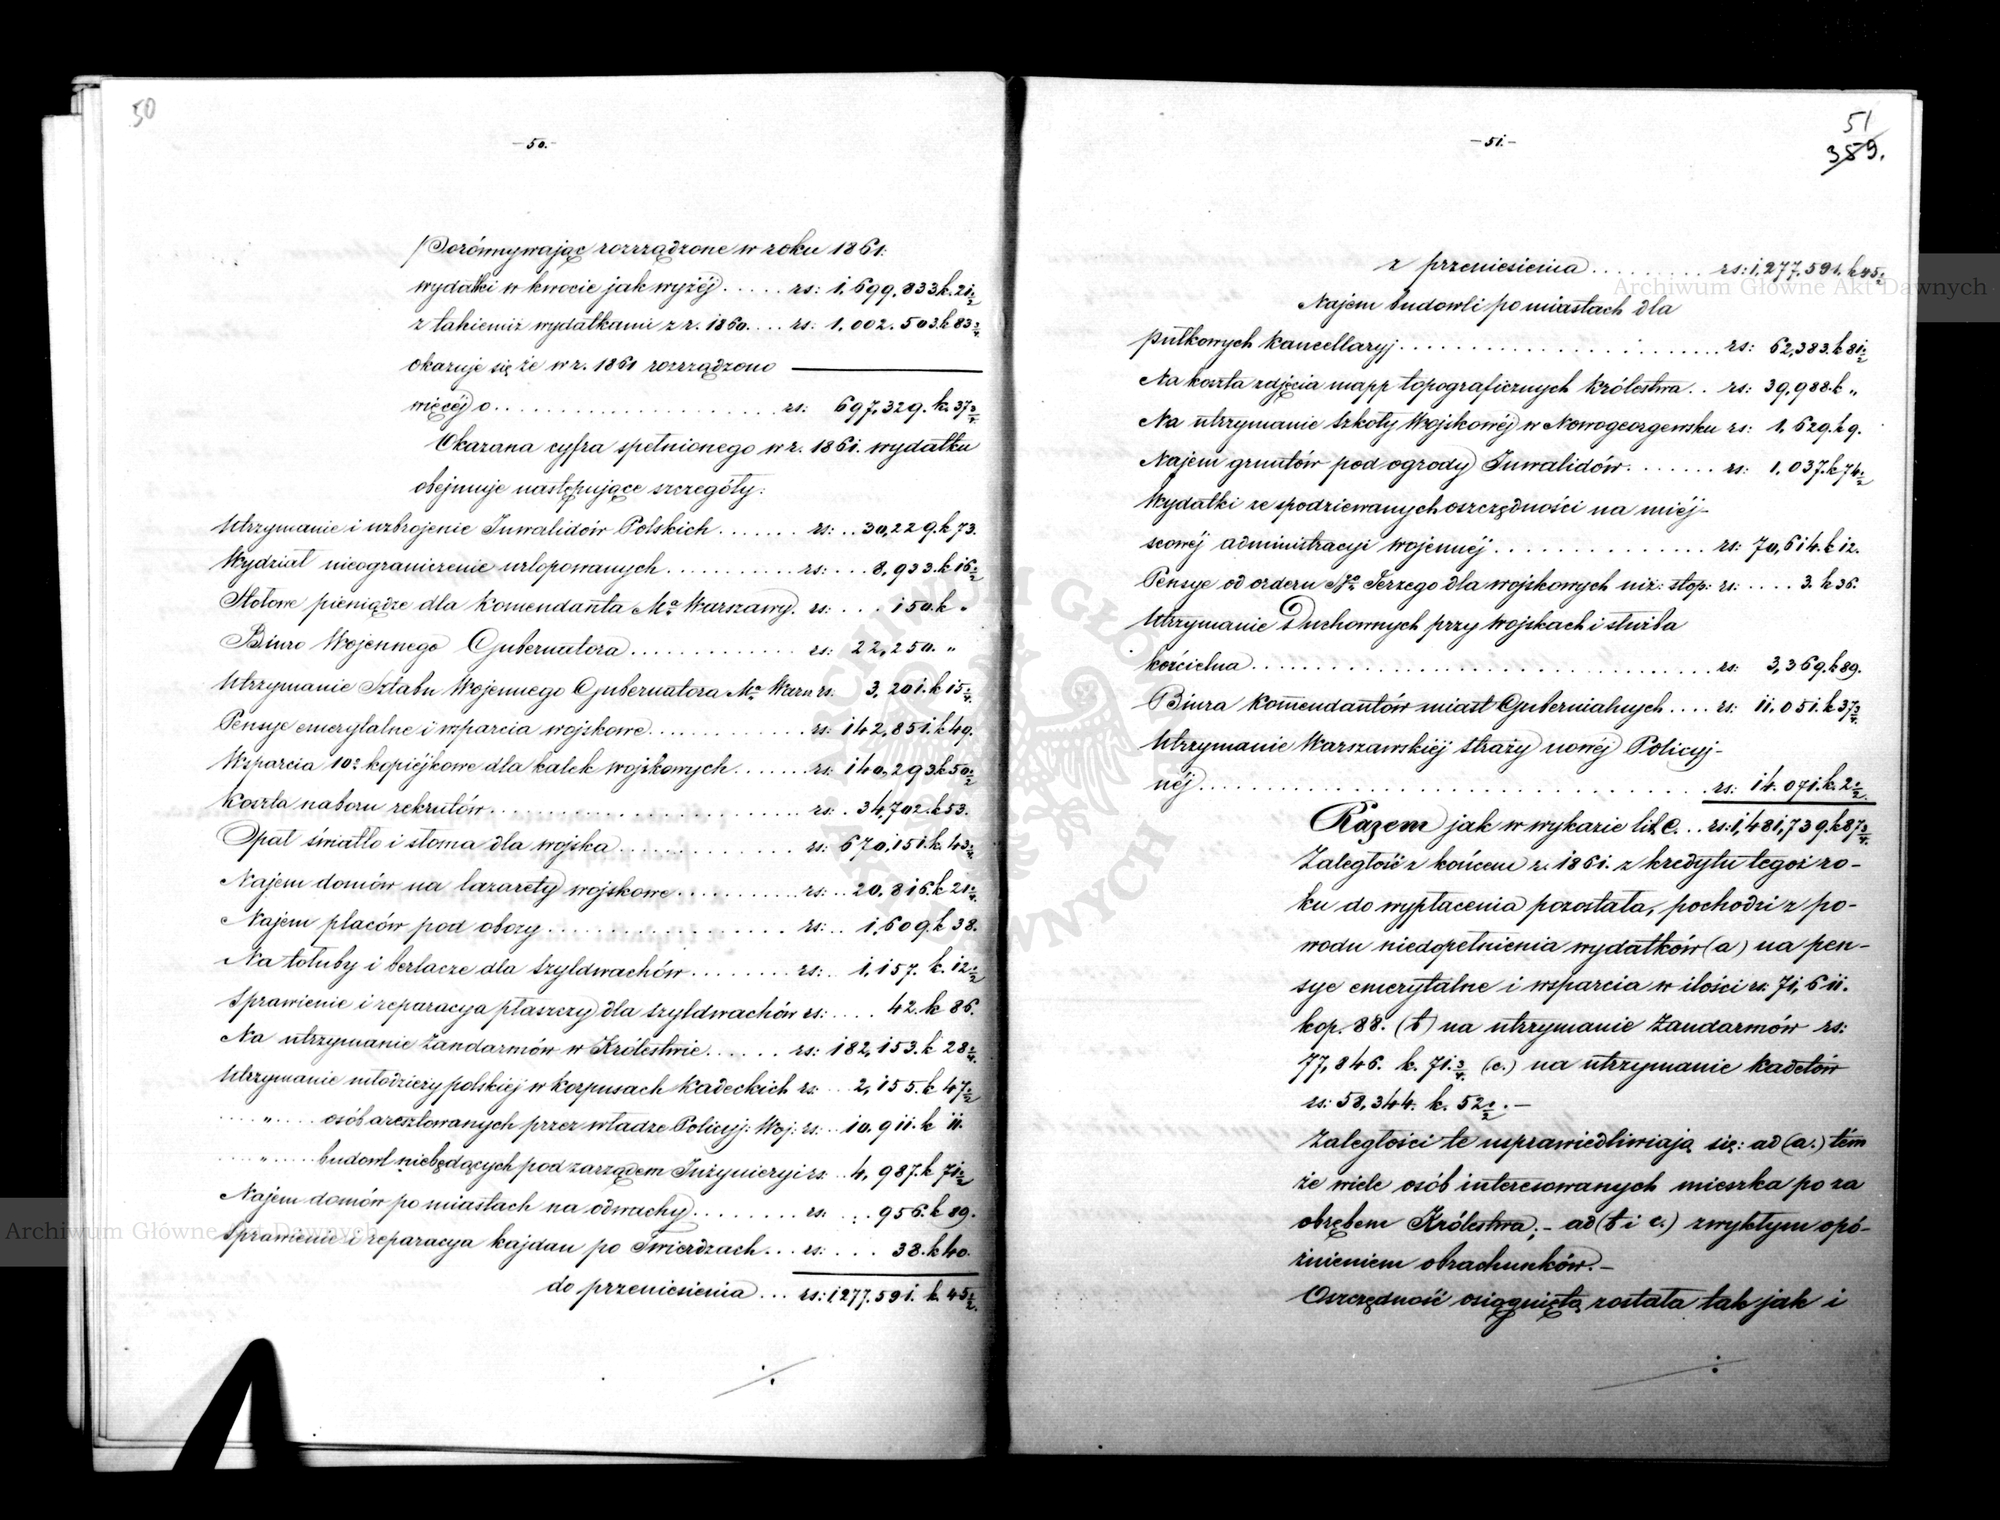 50
- 50. -
Porównywając rozrządzone w roku 1861.
wydatki w kwocie jak wyżéj ..... rs: 1,699,833 k. 21 1/2
z takiemiż wydatkami z r. 1860.... rs: 1,002.503 k 83 3/4
okazuje się że w r. 1861 rozrządzono
więcéj o .................... rs: 697,329. k. 37 3/4
Okazana cyfra spełnionego w r. 1861. wydatku
obejmuje następujące szczegóły:
Utrzymanie i uzbrojenie Inwalidów Polskich ....... rs: .. 30,229. k 73.
Wydział nieograniczenie urlopowanych .......... rs: ... 8,933. k 16 1/2
Stołowe pieniądze dla Komendanta Mta Warszawy. rs: ... 150. k "
Biuro Wojennego Gubernatora ............. rs: 22,250. "
Utrzymanie Sztabu Wojennego Gubernatora Mta Warsz rs: 3,201. k 15
Pensye emerytalne i wsparcia wojskowe ........... rs: 142,851. k 49.
Wsparcia 10o kopiéjkowe dla kalek wojskowych ....... rs: 140,293 k 50 1/2
Koszta naboru rekrutów ..................... rs: 34,702. k 53.
Opał światło i słoma dla wojska ............. rs: 670,151. k. 43
Najem domów na lazarety wojskowe .......... rs: .. 20,816. k 21
Najem placów pod obozy ................. rs: .. 1,609. k 38.
Na tołuby i berłacze dla szyldwachów ......... rs: .. 1,157. k. 12 1/2
Sprawienie i reparacya płaszczy dla szyldwachów rs: .... 42. k 86.
Na utrzymanie Żandarmów w Królestwie ...... rs: 182,153. k 28
Utrzymanie młodzieży polskiej w Korpusach Kadeckich rs: ... 2,155. k 47 1/2
.... " .... osób aresztowanych przez władze Policyj: Woj: rs: .. 10,911. k 11.
.... " .... budowl niebędących pod zarządem Inżynieryi rs: .. 4,987. k 71 1/2
Najem domów po miastach na odwachy ........ rs: ... 956. k 89.
Sprawienie i reparacya kajdan po Twierdzach ... rs: .... 38. k 40.
do przeniesienia ... rs: 1277.591. k. 45 1/2
51
- 51. -
359.
z przeniesienia .......... rs: 1,277,591. k 45 1/2
Najem budowli po miastach dla
pułkowych kancellaryj ...................... rs: 62,383. k 81 1/2
Na koszta zdjęcia mapp topograficznych Królestwa .. rs: 39,988. k "
Na utrzymanie Szkoły Wojskowéj w Nowogeorgewsku rs: 1,629. k 9.
Najem gruntów pod ogrody Inwalidów ....... rs: 1,037. k 74 1/2
Wydatki ze spodziewanych oszczędności na miéj-
scowéj administracyi wojennéj .............. rs: 70,614. k 12.
Pensye od orderu Sgo Jerzego dla wojskowych niż: stop: rs: .... 3. k 36.
Utrzymanie Duchownych przy Wojskach i służba
kościelna ............................. rs: 3,369. k 89.
Biura Komendantów miast Gubernialnych .... rs: 11,051. k 37 3/4
Utrzymanie Warszawskiéj straży nowéj Policyj-
néj ................................ rs: 14,071. k. 2 1/2
Razem jak w wykazie lit. C... rs: 1,481,739. k 87 3/4
Zaległość z końcem r. 1861. z kredytu tegoż ro-
ku do wypłacenia pozostała, pochodzi z po-
wodu niedopełnienia wydatków (a) na pen-
sye emerytalne i wsparcia w ilości rs: 71,611.
kop. 88. (b) na utrzymanie Żandarmów rs:
77,846. k. 71 3/4 (c.) na utrzymanie Kadetów
rs: 58,344. k. 52 1/2. -
Zaległości te usprawiedliwiają się: ad (a.) tém
że wiele osób interesowanych mieszka po za
obrębem Królestwa; - ad (b i c.) zwykłym opó-
źnieniem obrachunków. -
Oszczędność osiągniętą została tak jak i
Archiwum Główne Akt Dawnych
Archiwum Główne Akt Dawnych